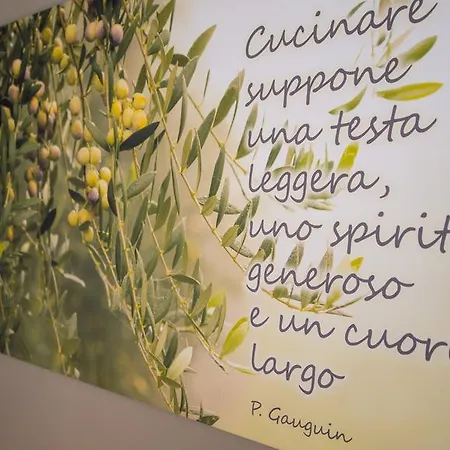 Cucinare
suppone
una testa
leggera,
uno spirit
generoso
e un cuor
largo
P. Gauguin